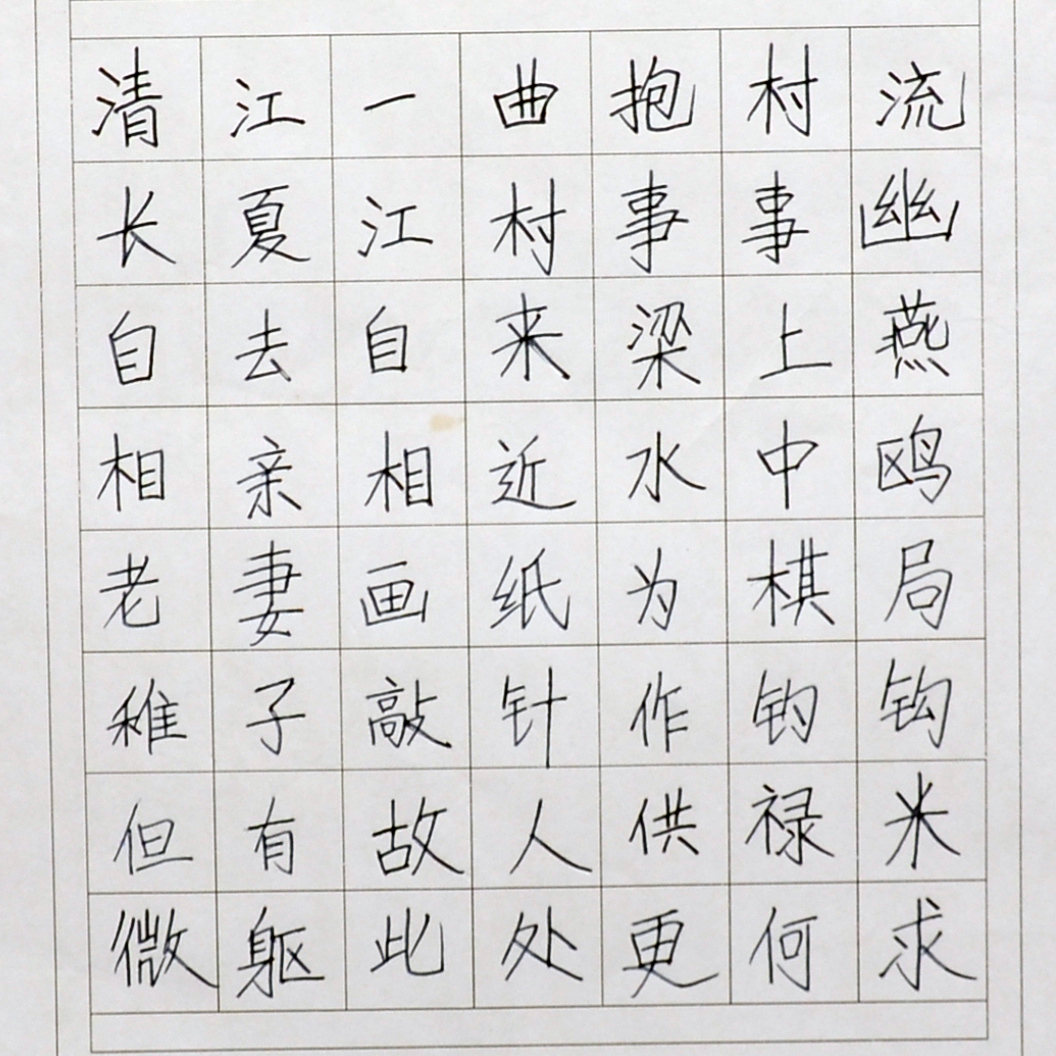 清江一曲抱村流
长夏江村事事幽
自去自来梁上燕
相亲相近水中鸥
老妻画纸为棋局
稚子敲针作钓钩
但有故人供禄米
微躯此处更何求